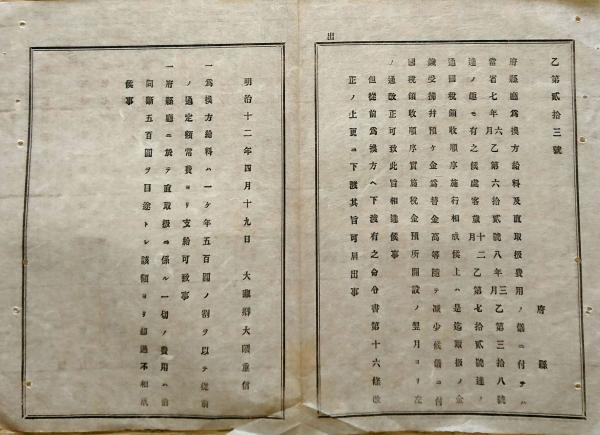 出
乙第貳拾三號
府縣
府縣廳爲換方給料及直取扱費用ノ儀ニ付テハ
當省七年六月乙第六拾貳號八年三月乙第三拾八號
達ノ趣モ有之候處客歳十二月乙第七拾貳號達ノ
通國税領收順序施行相成候上ハ是迄取扱ノ金
員受拂幷預ケ金爲替金高等隨テ減少候儀ニ付
國税領收順序實施税金預所開設ノ翌月ヨリ左
ノ通改正可致此旨相達候事
但從前爲換方ヘ下渡有之命令書第十六條改
正ノ上更ニ下渡其旨可届出事
明治十二年四月十九日 大藏卿大隈重信
一爲換方給料ハ一ケ年五百圓ノ割ヲ以テ從前
ノ通定額常費ヨリ支給可致事
一府縣廳ニ於テ直取扱ニ係ル一切ノ費用ハ前
同斷五百圓ヲ目途トシ該額ヨリ超過不相成
候事